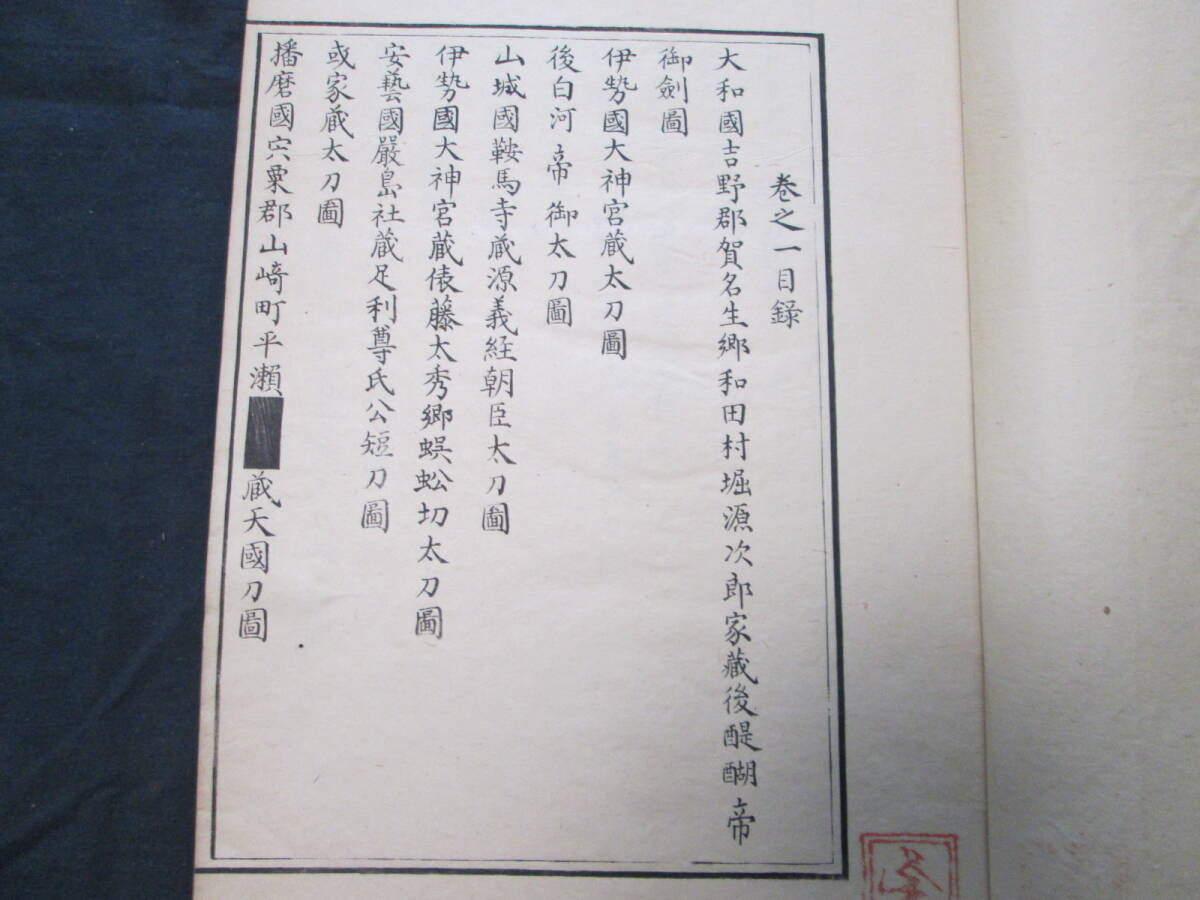 巻之一目録
大和國吉野郡賀名生郷和田村堀源次郎家蔵後醍醐帝
御劍圖
伊勢國大神宮蔵太刀圖
後白河帝御太刀圖
山城國鞍馬寺蔵源義経朝臣太刀圖
伊勢國大神宮蔵俵藤太秀郷蜈蚣切太刀圖
安藝國嚴島社蔵足利尊氏公短刀圖
或家蔵太刀圖
播磨國宍粟郡山崎町平瀬蔵天國刀圖